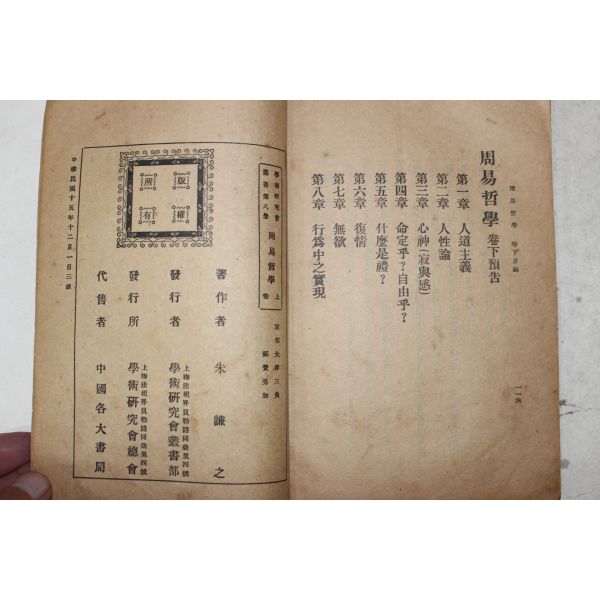 周易哲學 卷下目錄
一一六
周易哲學 卷下預告
第一章 人道主義
第二章 人性論
第三章 心神(寂與感)
第四章 命定乎？自由乎？
第五章 什麼是禮？
第六章 復情
第七章 無欲
第八章 行爲中之實現
學術研究會
叢書第八册
周易哲學 上卷
實價大洋三角
郵費另加
版權
所有
著作者 朱謙之
發行者 學術研究會叢書部
發行所 學術研究會總會
代售者 中國各大書局
中華民國十五年十二月一日三版